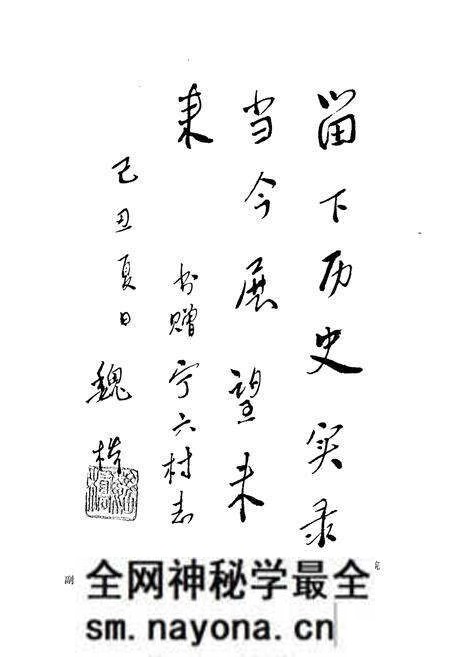 留下历史实录
当今展望未
来
书赠宁六村志
己丑夏日
魏桥
副
全网神秘学最全
sm.nayona.cn